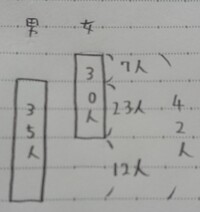 男 女
30人
35人
7人
23人
12人
42人